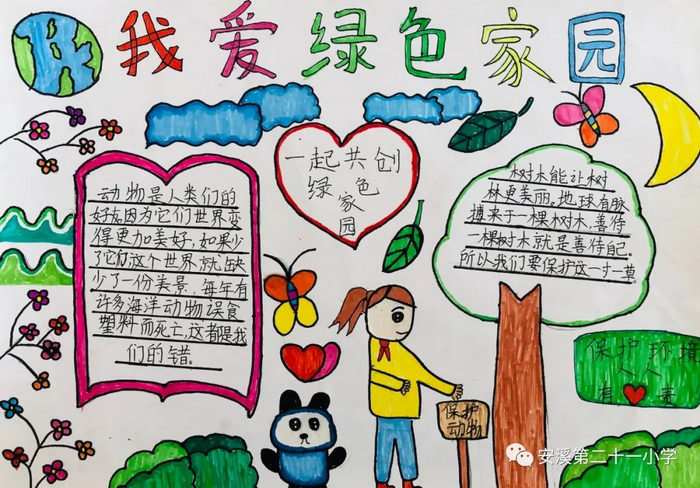 我爱绿色家园
一起共创
绿色
家
园
动物是人类们的
好友因为它们世界变
得更加美好,如果少
了它们这个世界就缺
少了一份美景.每年有
许多海洋动物误食
塑料而死亡.这都是我
们的错.
树木能让树
林更美丽.地球有脉
搏来于一棵树木.善待
一棵树木就是善待自己.
所以我们要保护这一寸一草
保护环境
人人
有 责
保护
动物
安溪第二十一小学